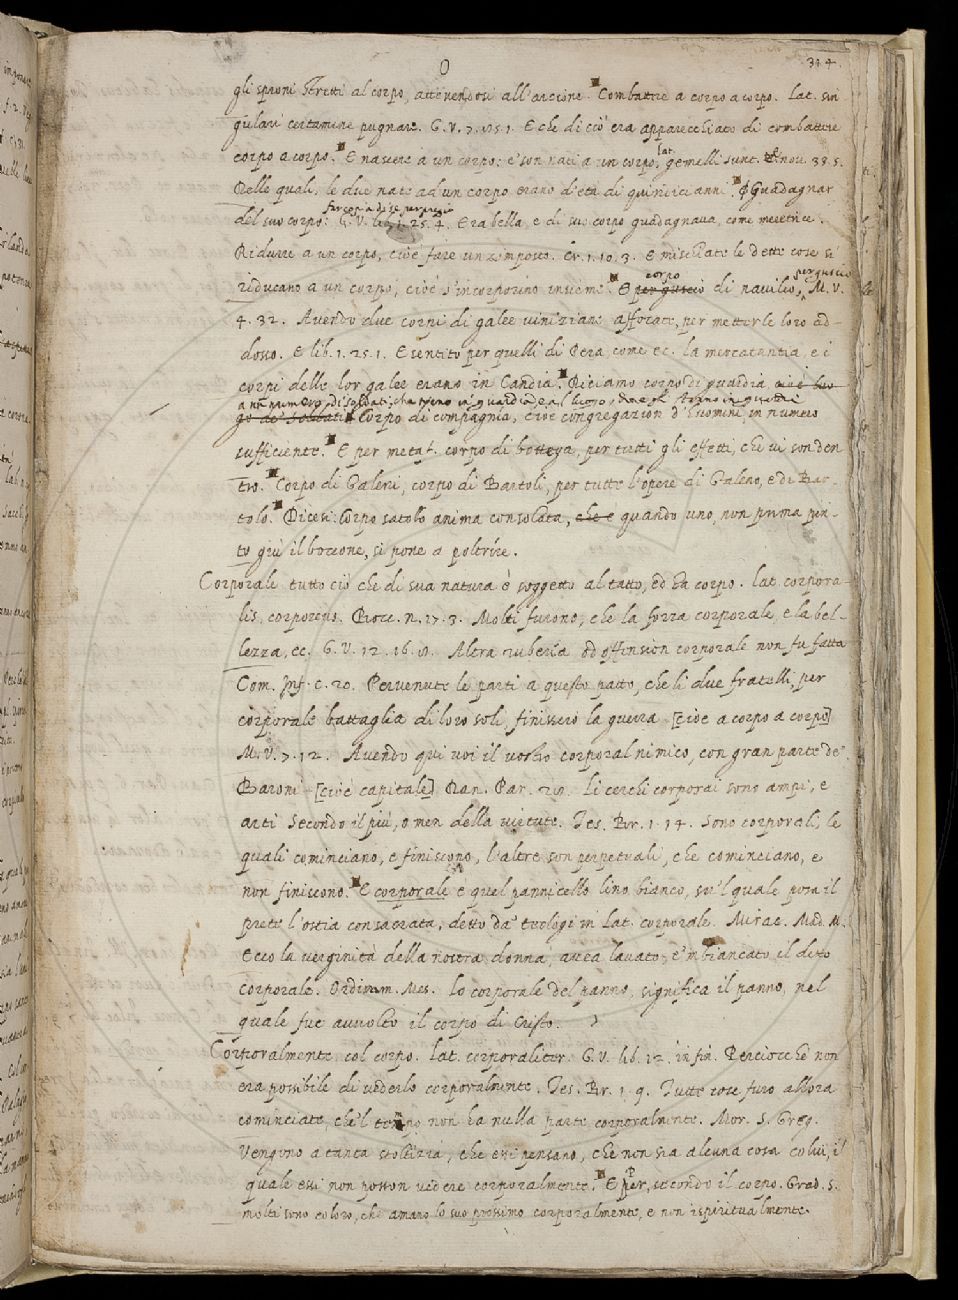 O
314.
gli sproni stretti al corpo, attenendosi all'arcione. Combattere a corpo a corpo. Lat. sin
gulari certamine pugnare. G. V. 7. 151. E che di ciò era apparecchiato di combattere
corpo a corpo. E nascere a un corpo: e son nati a un corpo, lat. gemelli sunt. nou. 38. 5.
Delle quali, le due nate ad un corpo erano d'età di quindici anni. Guadagnar
del suo corpo: far copia di se per prezzo G. V. lib. 1. 25. 4. Era bella, e di suo corpo guadagnaua, come meretrice.
Ridurre a un corpo, cioè fare un composto. Cr. 1. 10. 3. E mischiate le dette cose si
riducano a un corpo, cioè s'incorporino insieme. E per guscio corpo di nauilio, per guscio M. V.
4. 32. Auendo due corpi di galee uiniziane affocate, per metterle loro ad-
dosso. E lib. 1. 25. 1. E sentito per quelli di Pera, come ec. la mercatantia, e i
corpi delle lor galee erano in Candia. Diciamo corpo di guardia cioè luo
a un numero di soldati, che sieno in guardia e al luogo, doue gli stanno in guardia
go de' soldati Corpo di compagnia, cioè congregazion d'huomini, in numero
sufficiente. E per metaf. corpo di bottega, per tutti gli effetti, che ui son den
tro. Corpo di Galeni, corpo di Bartoli, per tutte l'opere di Galeno, e di Bar-
tolo. Dicesi. Corpo satollo anima consolata, che è quando uno, non prima pin-
to giù il boccone, si pone a poltrire.
Corporale tutto ciò che di sua natura è soggetto al tatto, ed ha corpo. lat. corpora-
lis, corporeus. Bocc. n. 17. 3. Molti furono, che la forza corporale, e la bel-
lezza, ec. G. V. 12. 16. Altra ruberia od offension corporale non fu fatta
Com. Inf. c. 20. Peruenute le parti a questo patto, che li due fratelli, per
corporale battaglia di loro soli, finissero la guerra [cioè a corpo a corpo]
M. V. 7. 12. Auendo qui uoi il uostro corporal nimico, con gran parte de'
Baroni [cioè capitale] Dan. Par. 28. Li cerchi corporai sono ampi, e
arti Secondo il più, o men della uirtute. Tes. Br. 1. 14. Sono corporali, le
quali cominciano, e finiscono, l'altre son perpetuali, che cominciano, e
non finiscono. E corporale è quel pannicello lino bianco, su'l quale posa il
prete l'ostia consacrata, detto da' teologi in lat. corporale. Mirac. Mad. M.
Ecco la uerginità della nostra donna, auea lauato, e 'mbiancato il deto
corporale. Ordinam. Mes. lo corporale del panno, significa il panno, nel
quale fue auuolto il corpo di Cristo.
Corporalmente col corpo. lat. corporaliter. G. V. lib. 12. in fin. Perciocchè non
era possibile di uederlo corporalmente. Tes. Br. 1. 9. Tutte cose furo allora
cominciate, che'l tempo non ha nulla parte corporalmente. Mor. S. Greg.
Vengono a tanta stoltizia, che essi pensano, che non sia alcuna cosa colui, il
quale essi non posson uedere corporalmente. E per, secondo il corpo. Grad. S.
molti sono coloro, che amano lo suo prossimo corporalmente, e non ispiritualmente.